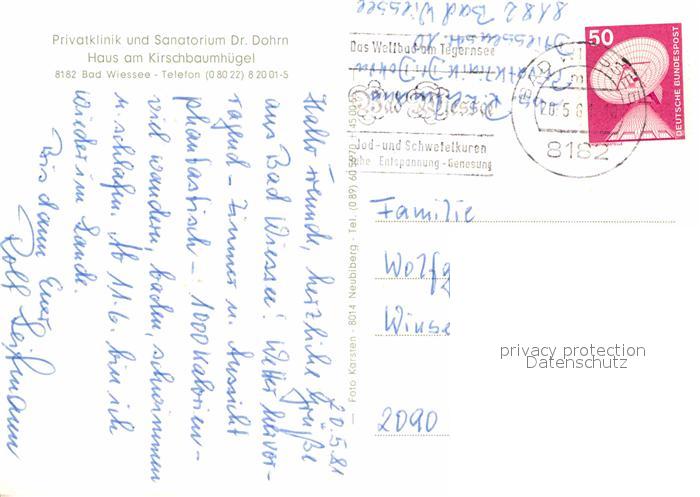 Privatklinik und Sanatorium Dr. Dohrn
Haus am Kirschbaumhügel
8182 Bad Wiessee - Telefon (0 80 22) 8 20 01-5
20.5.81
Hallo Freunde, herzliche Grüße
aus Bad Wiessee! Wetter hervor-
ragend - Zimmer u. Aussicht
phantastisch - 1000 Kalorien -
viel wandern, baden, schwimmen
u. schlafen. Ab 11.6. bin ich
wieder im Lande.
Bis dann Euer
Rolf
Foto Karsten - 8014 Neubiberg - Tel. (0 89) 60
Privatklinik Dr. Dohrn
8182 Bad Wiessee
Das Weltbad am Tegernsee
Bad Wiessee
Jod- und Schwefelkuren
Entspannung - Genesung
20.5.81
8182
50
DEUTSCHE BUNDESPOST
Familie
Wolfg
Winse
2090
privacy protection
Datenschutz